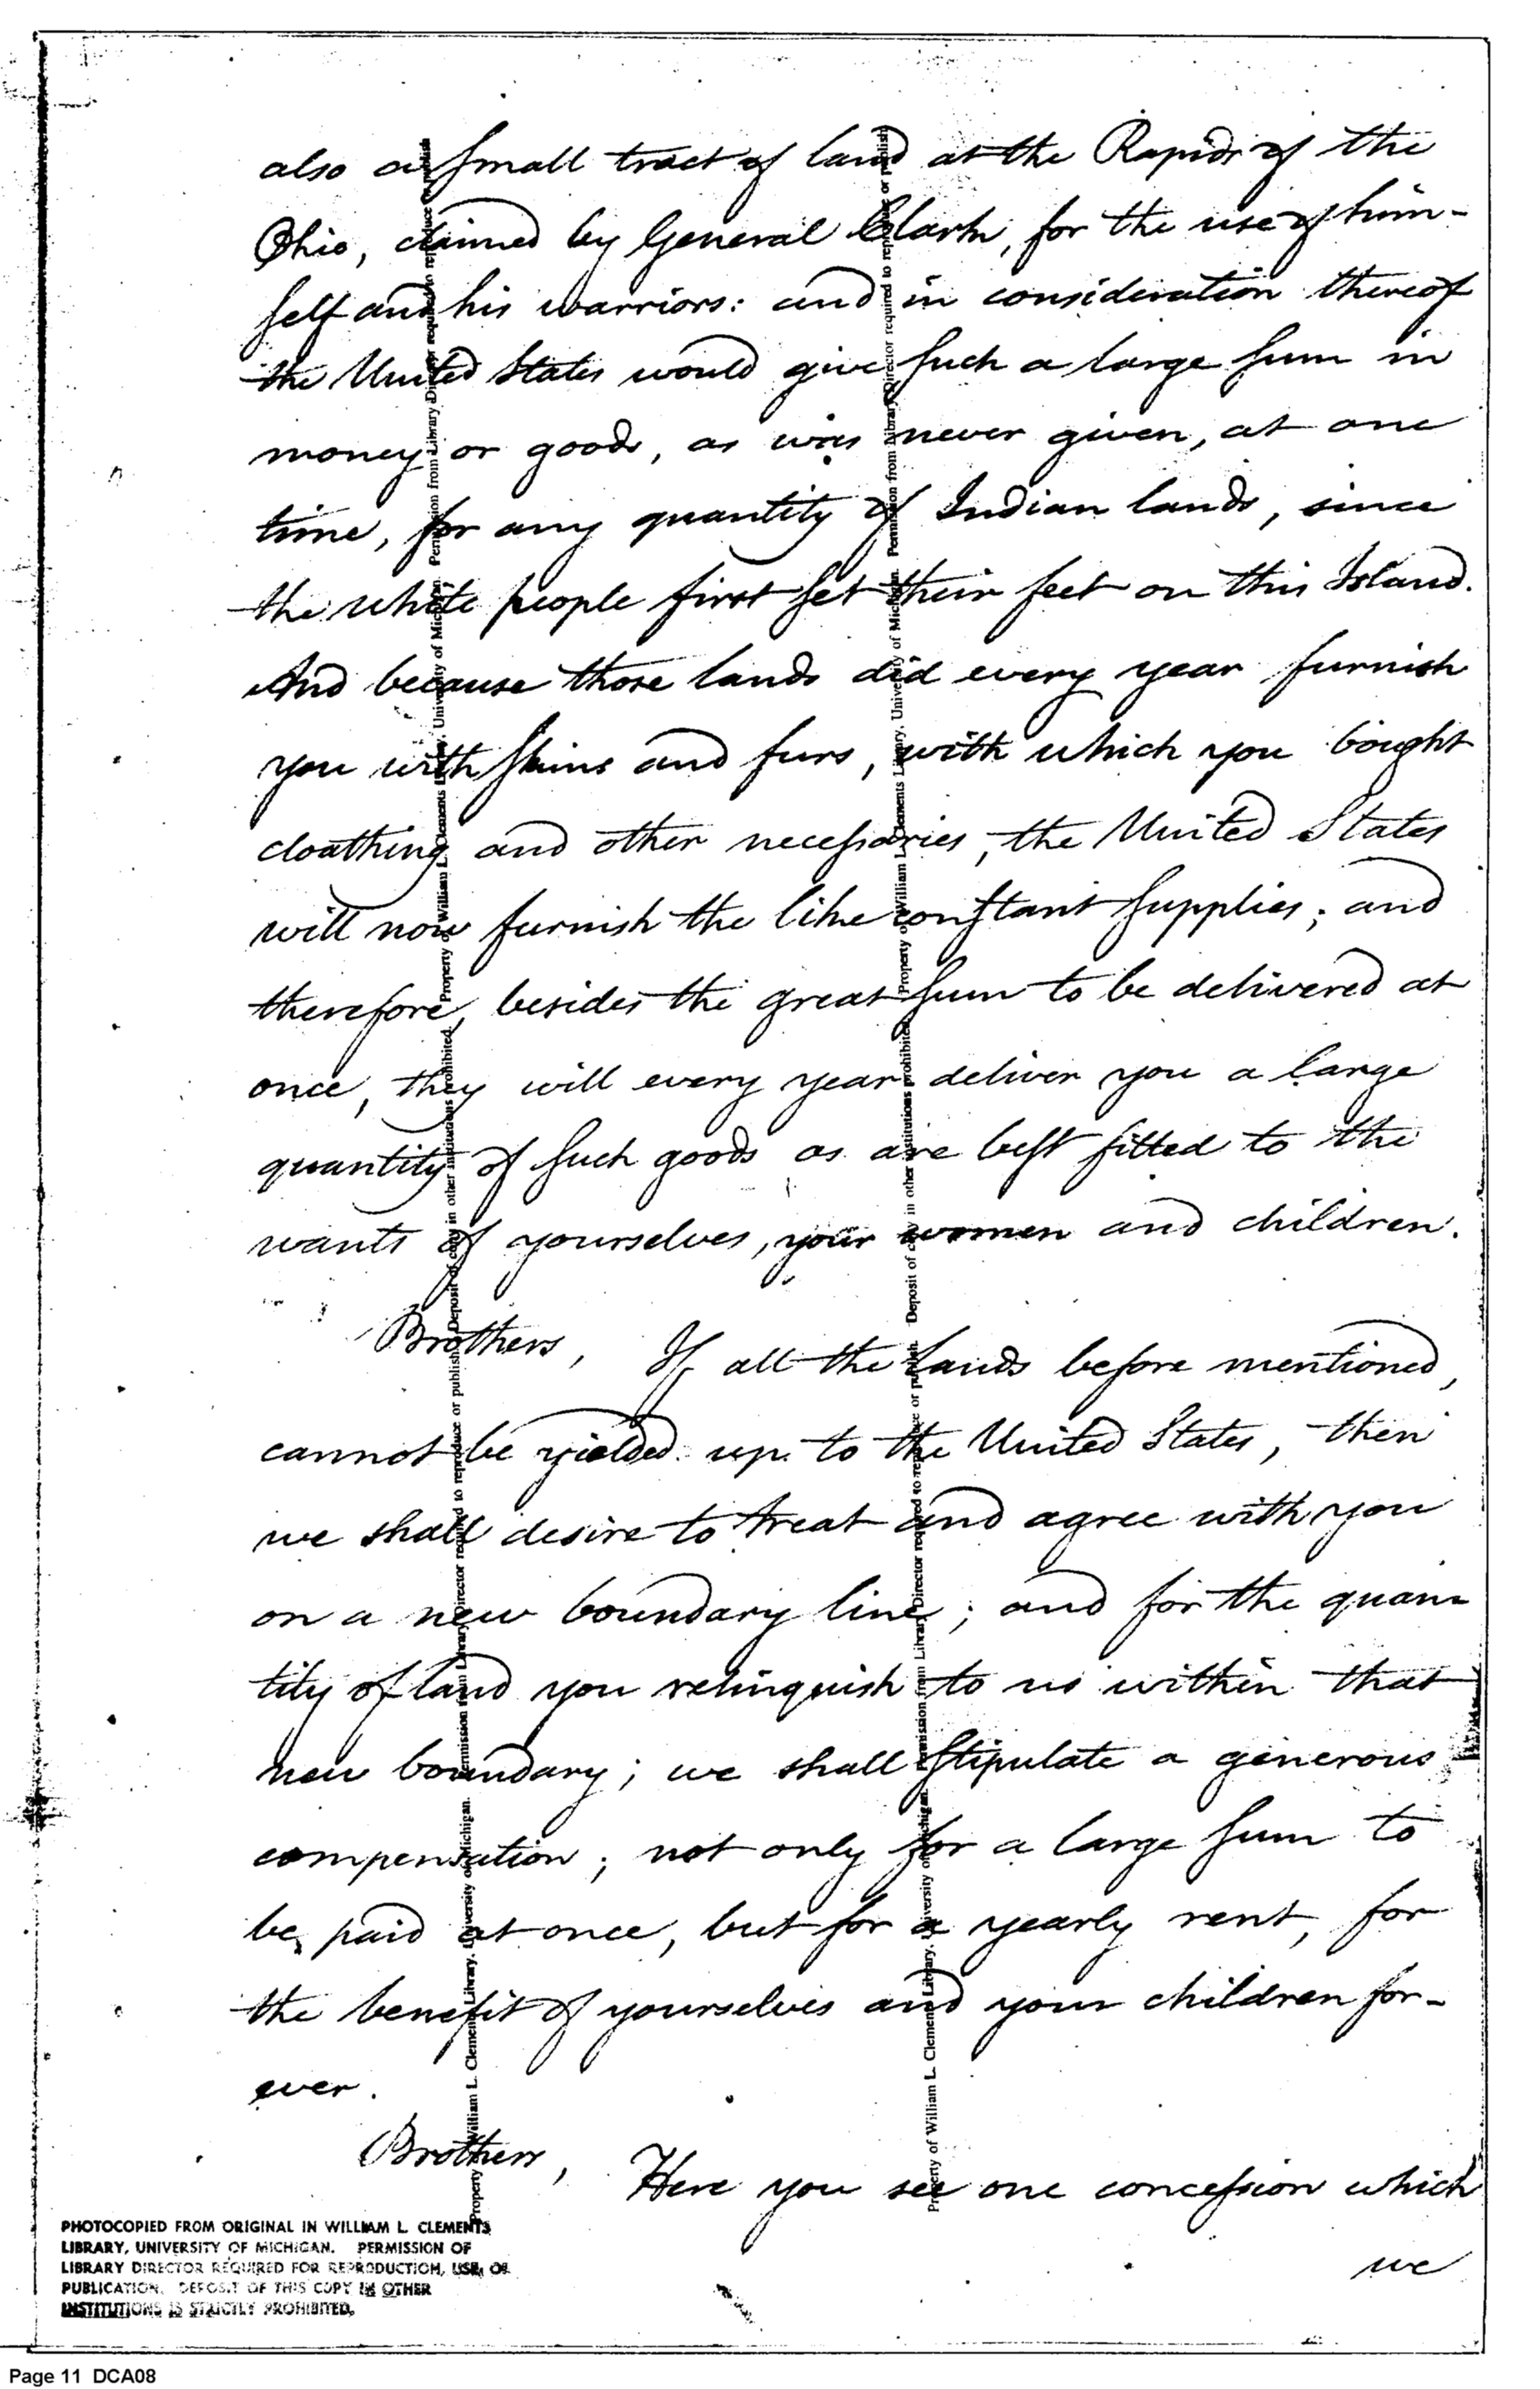 also a small tract of land at the Rapids of the
Ohio, claimed by General Clark, for the use of him-
self and his warriors: and in consideration thereof
the United States would give such a large sum in
money or goods, as was never given, at one
time, for any quantity of Indian lands, since
the white people first set their feet on this Island.
And because those lands did every year furnish
you with skins and furs, with which you bought
cloathing and other necessaries, the United States
will now furnish the like constant supplies; and
therefore, besides the great sum to be delivered at
once, they will every year deliver you a large
quantity of such goods as are best fitted to the
wants of yourselves, your women and children.
Brothers, If all the lands before mentioned,
cannot be yielded up to the United States, then
we shall desire to treat and agree with you
on a new boundary line; and for the quan-
tity of land you relinquish to us within that
new boundary; we shall stipulate a generous
compensation; not only for a large sum to
be paid at once, but for a yearly rent, for
the benefit of yourselves and your children for-
ever.
Brothers, Here you see one concession which
we
Property of William L. Clements Library, University of Michigan. Permission from Library Director required to reproduce or publish. Deposit of copy in other institutions prohibited.
Property of William L. Clements Library, University of Michigan. Permission from Library Director required to reproduce or publish
Property of William L. Clements Library, University of Michigan. Permission from Library Director required to reproduce or publish. Deposit of copy in other institutions prohibited.
Property of William L. Clements Library, University of Michigan. Permission from Library Director required to reproduce or publish
PHOTOCOPIED FROM ORIGINAL IN WILLIAM L. CLEMENTS
LIBRARY, UNIVERSITY OF MICHIGAN. PERMISSION OF
LIBRARY DIRECTOR REQUIRED FOR REPRODUCTION, USE, OR
PUBLICATION. DEPOSIT OF THIS COPY IN OTHER
INSTITUTIONS IS STRICTLY PROHIBITED.
Page 11 DCA08